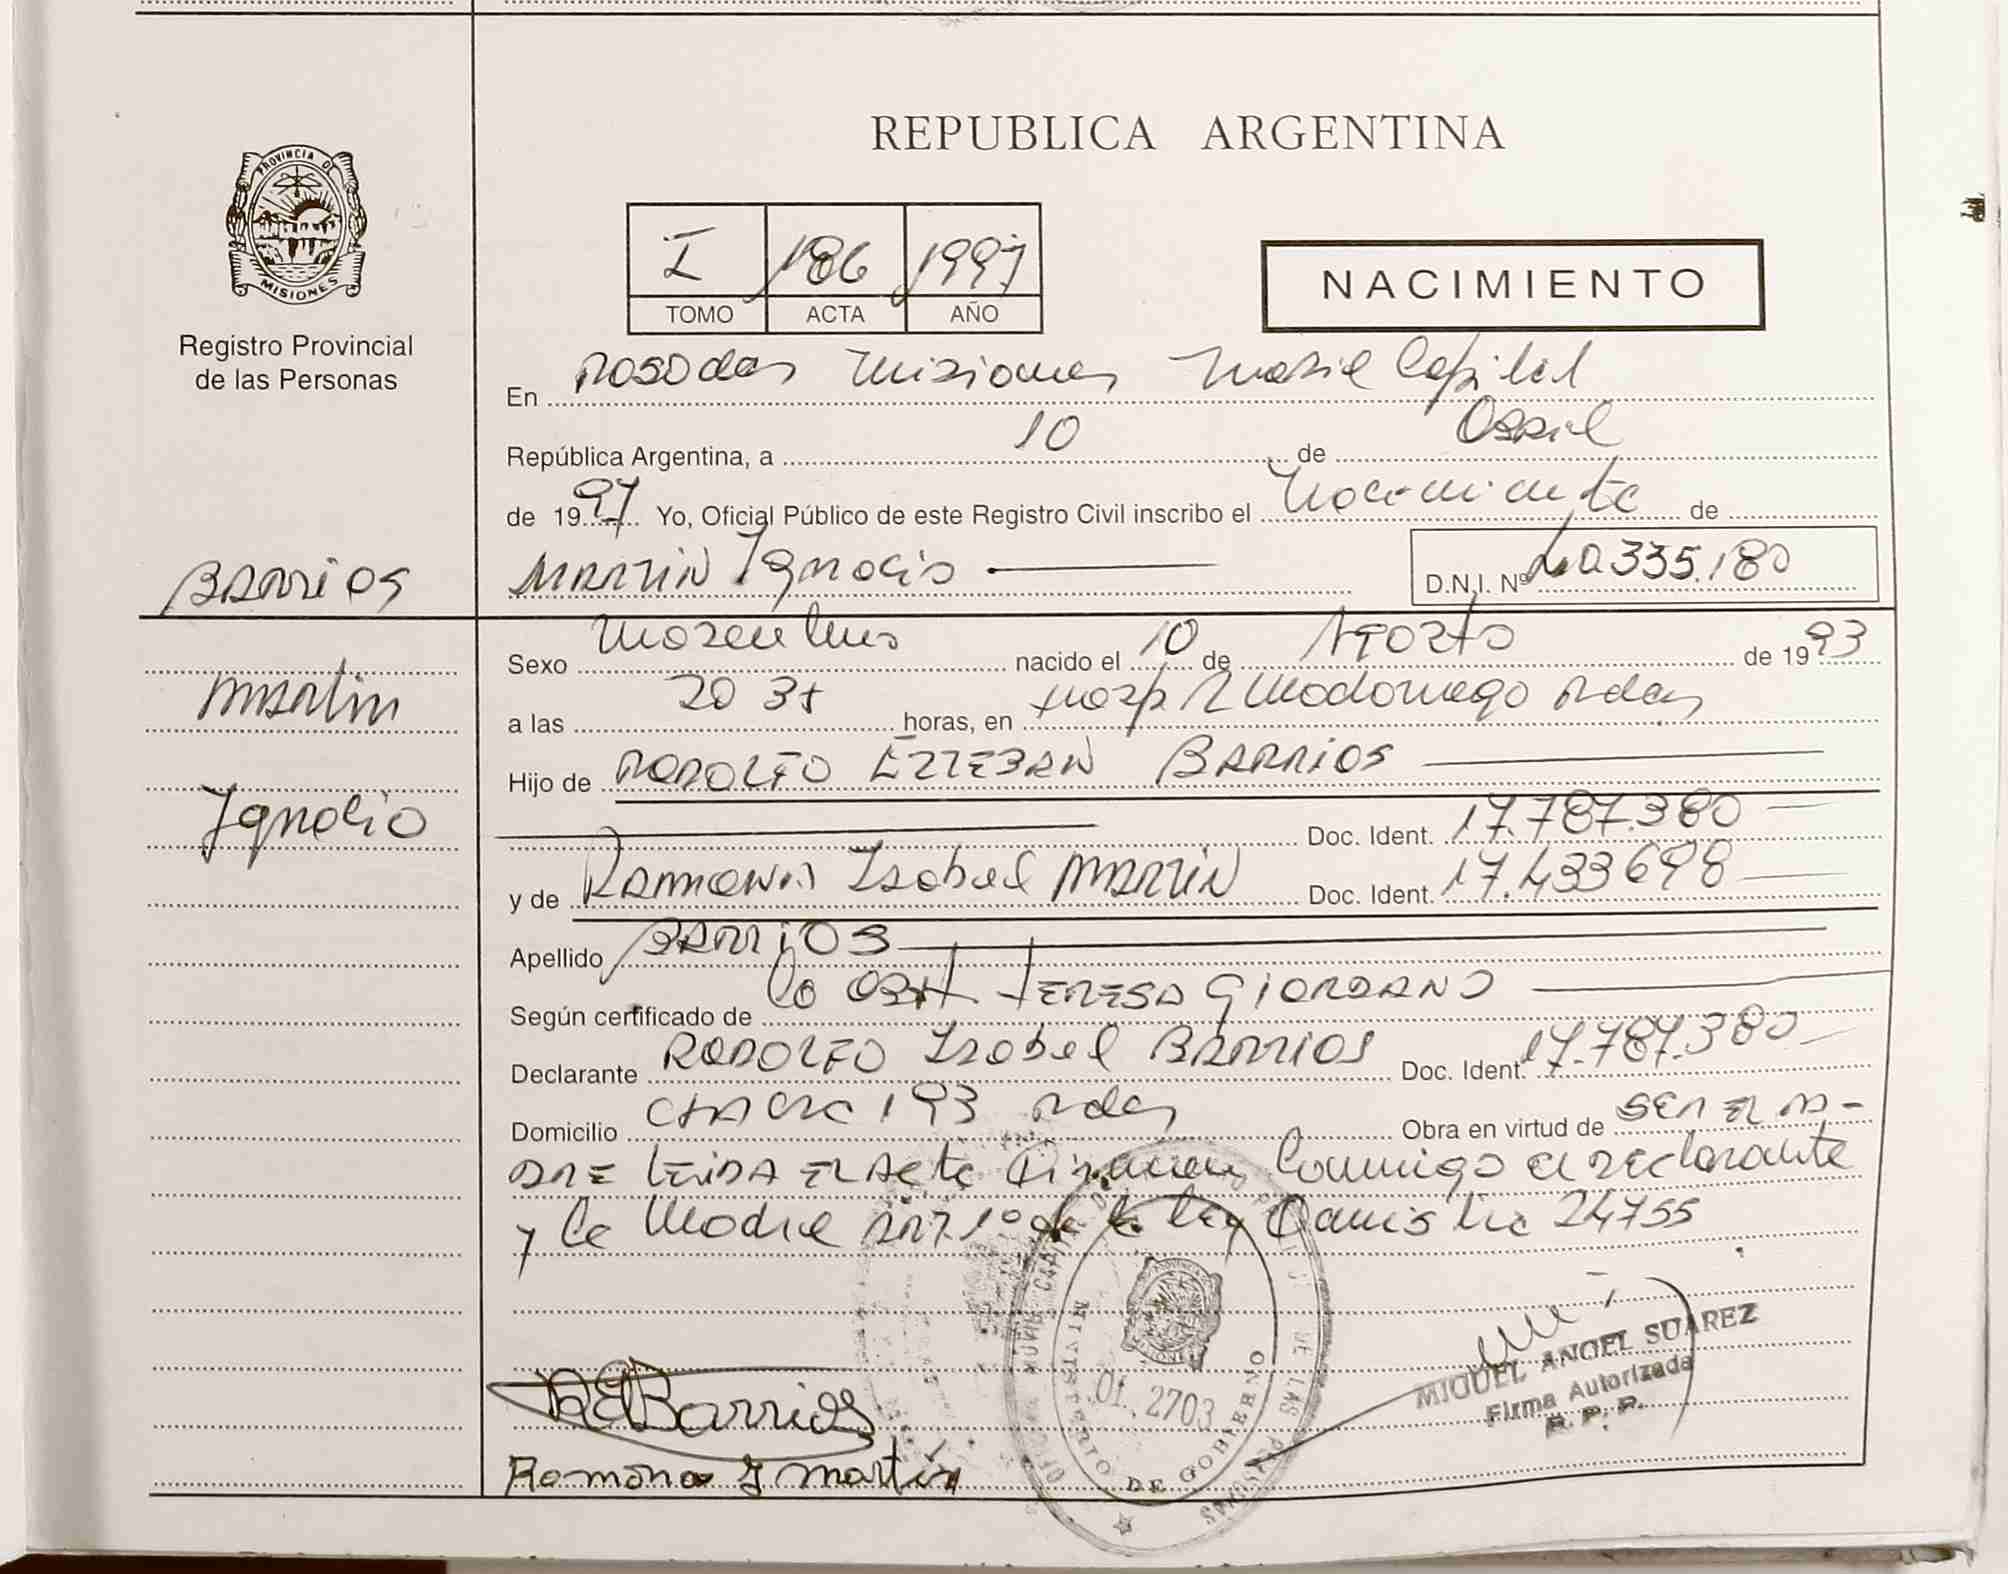 REPUBLICA ARGENTINA
PROVINCIA DE
MISIONES
Registro Provincial
de las Personas
I 186 1997
TOMO ACTA AÑO
NACIMIENTO
En Posadas Misiones Capital
República Argentina, a 10 de Abril
de 1997 Yo, Oficial Público de este Registro Civil inscribo el Nacimiento de
BARRIOS
MARTIN Ignacio
D.N.I. Nº 40.335.180
Martin
Ignacio
Sexo Masculino nacido el 10 de Agosto de 1993
a las 20 35 horas, en Hosp R Madariaga Pdas
Hijo de RODOLFO ESTEBAN BARRIOS
Doc. Ident. 17.787.380
y de RAMONA Isabel MARTIN Doc. Ident. 17.433698
Apellido BARRIOS
Según certificado de La OBST TERESA GIORDANO
Declarante RODOLFO Isabel BARRIOS Doc. Ident. 17.787.380
Domicilio CHACRA 193 Pdas Obra en virtud de SER EL PA-
DRE LEIDA EL Acta Firman Conmigo el declarante
y la Madre ART. 1º de la ley Amnistia 24755
REBarrios
Ramona I Martín
MINISTERIO DE GOBIERNO
01. 2703
MIGUEL ANGEL SUAREZ
Firma Autorizada
R. P. P.